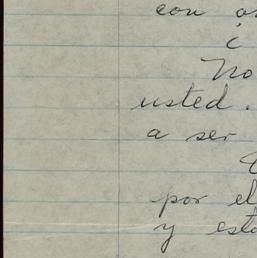 con
¿
No
usted.
a ser
por el
y